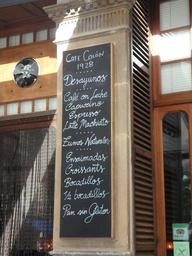 Café Colón
1928
Desayunos
Café con Leche
Capuccino
Espresso
Late Machiato
Zumos Naturales
Ensaimadas
Croissants
Bocadillos
½ bocadillos
Pan sin Gluten